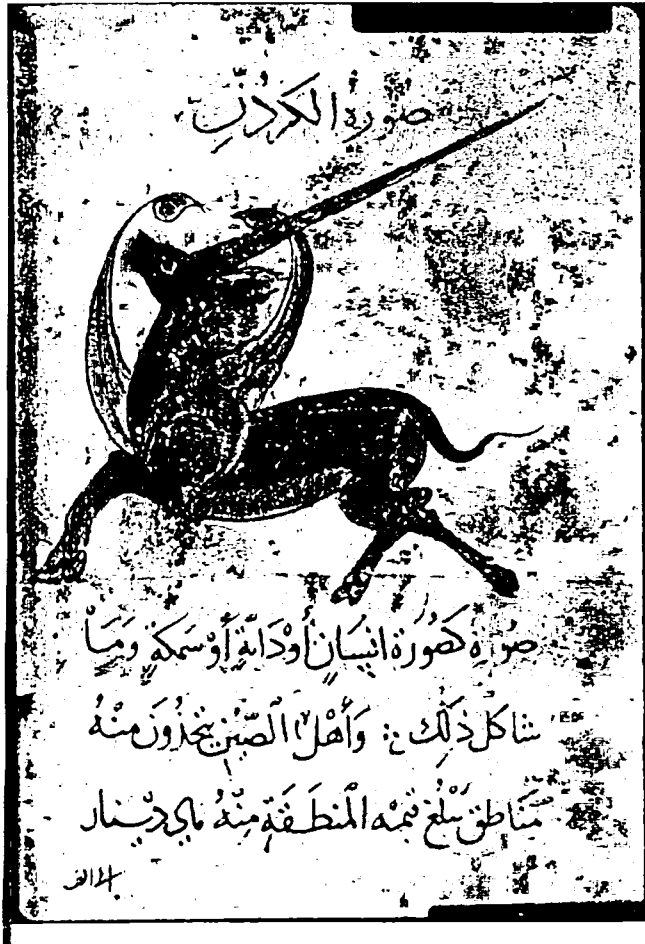 صُورَة الكَرْكَدَّنِ
صُورَة كَصُورَة انْسَانٍ أَوْدَابَّةٍ أَوْسَمَكَةٍ وَمَا
شاكل ذَلِكَ ؞ وَأَهْلُ الصِّينِ يَتخِذُونَ مِنْهُ
مَنَاطِقَ يَبْلُغُ قيمَة المِنْطَقَةِ مِنْهُ مايَ دِينار